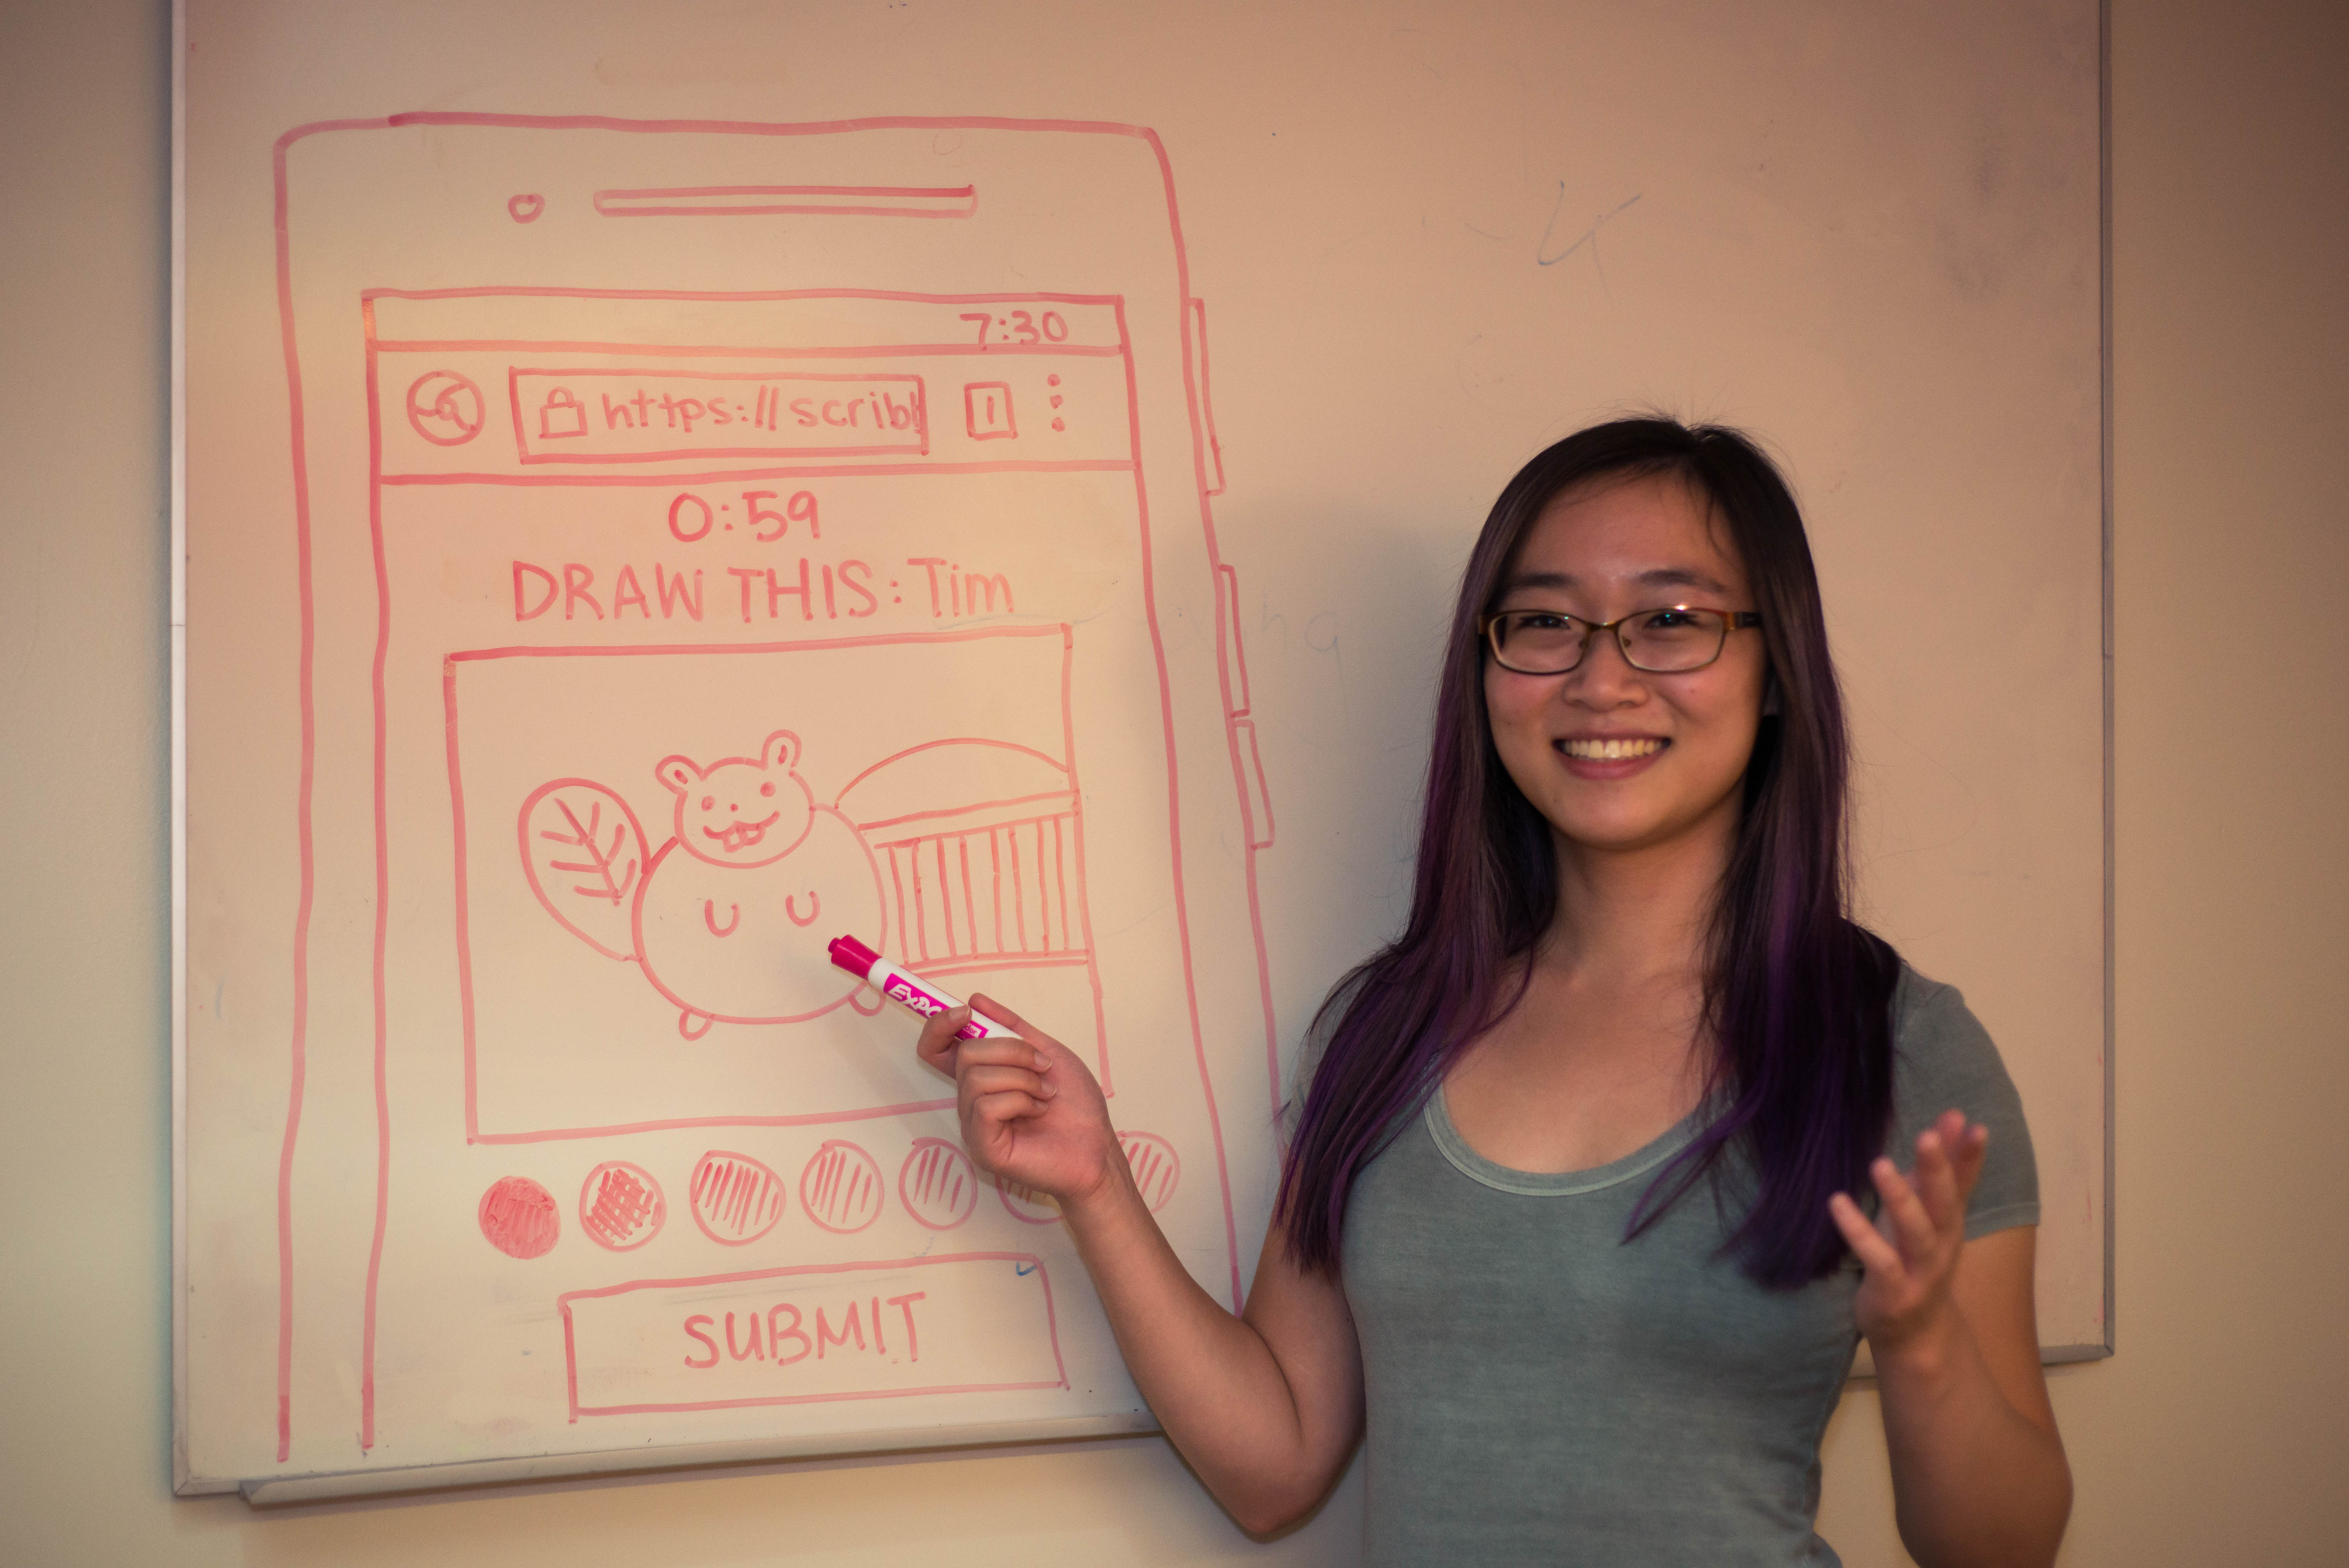 7:30
https://scribl
1
0:59
DRAW THIS: Tim
EXPO
SUBMIT